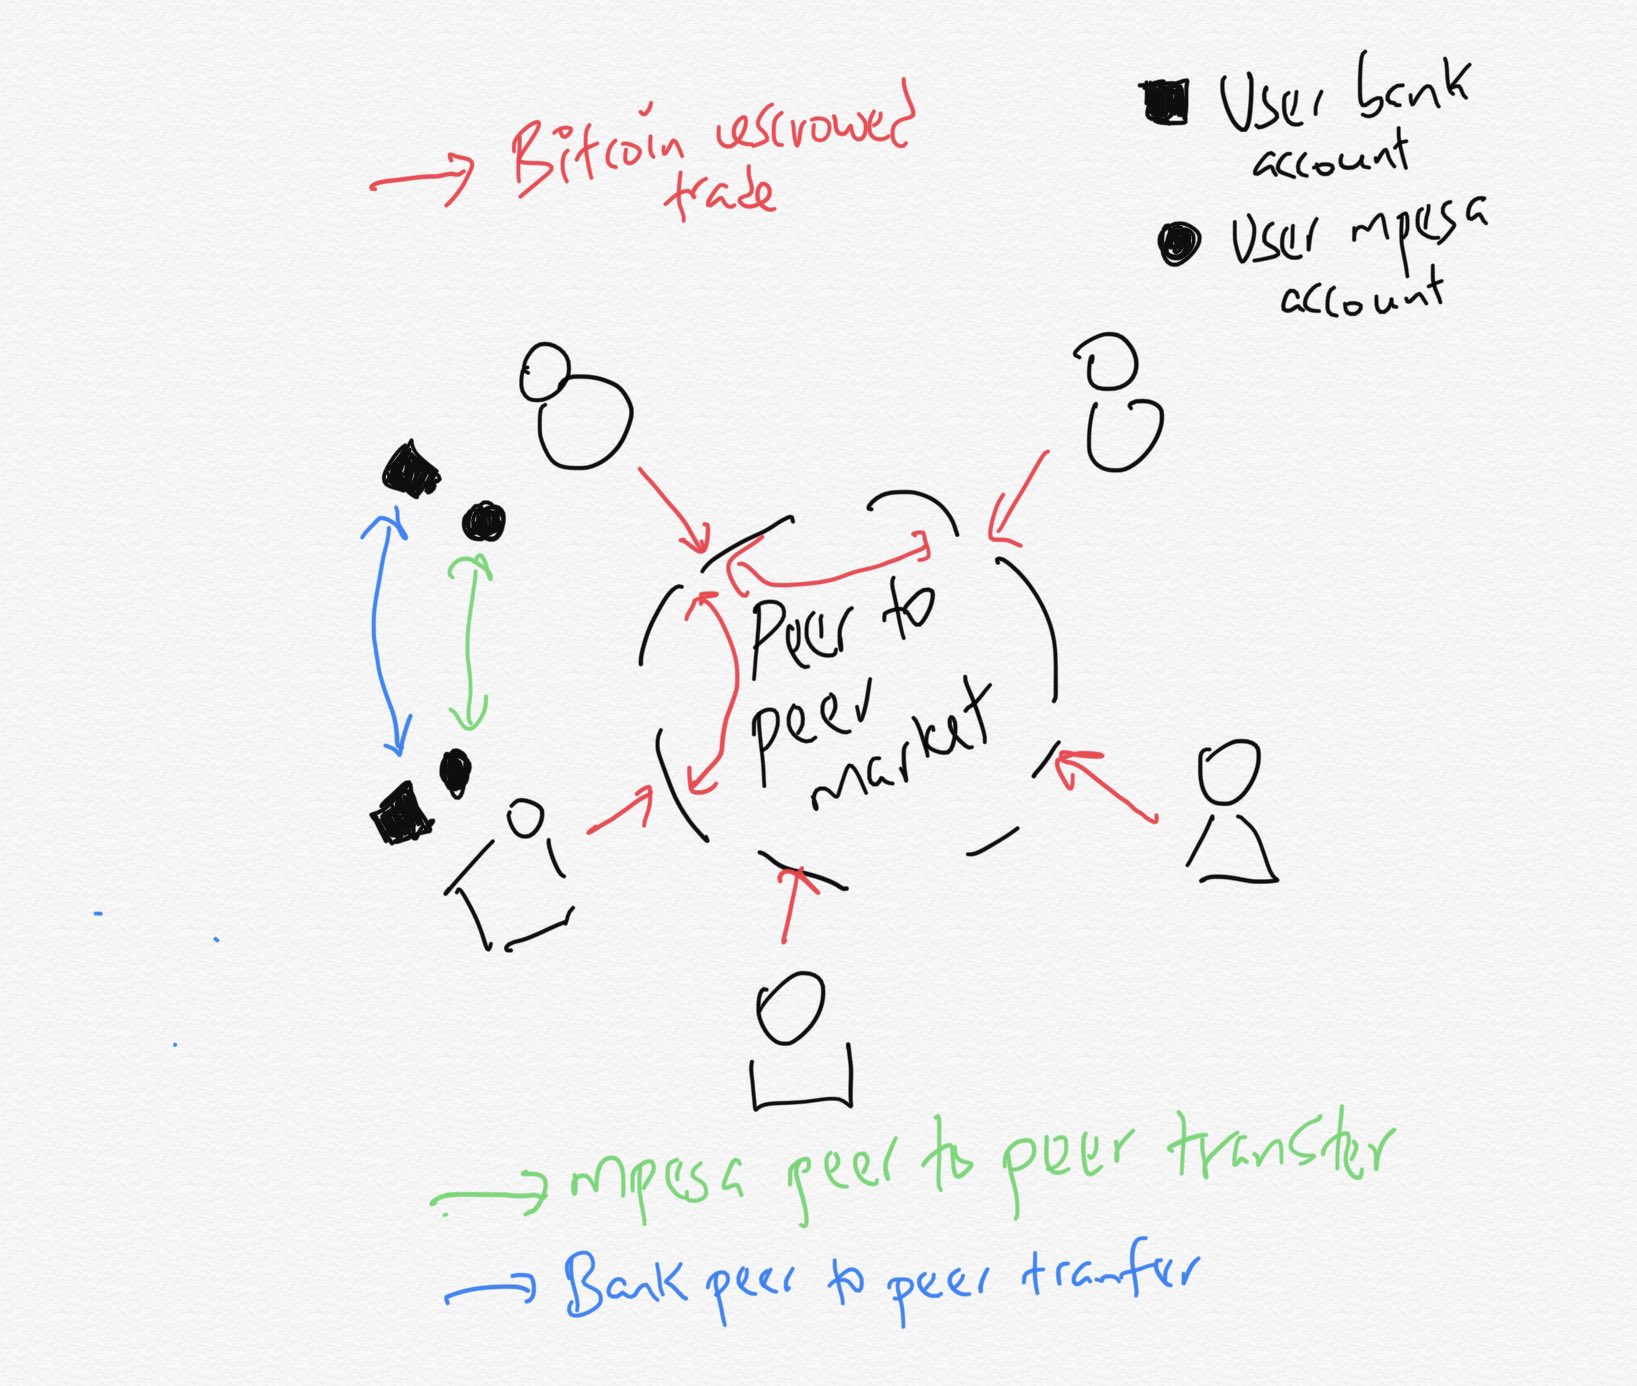 Bitcoin escrowed
trade
User bank
account
User mpesa
account
Peer to
peer
market
mpesa peer to peer transfer
Bank peer to peer tranfer